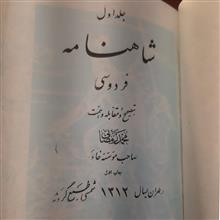 جلد اول
شاهنامه
فردوسی
بتصحیح و مقابله و همت
محمد رمضانی
صاحب مؤسسه خاور
چاپ اول
طهران بسال ۱۳۱۲ شمسی طبع گردید